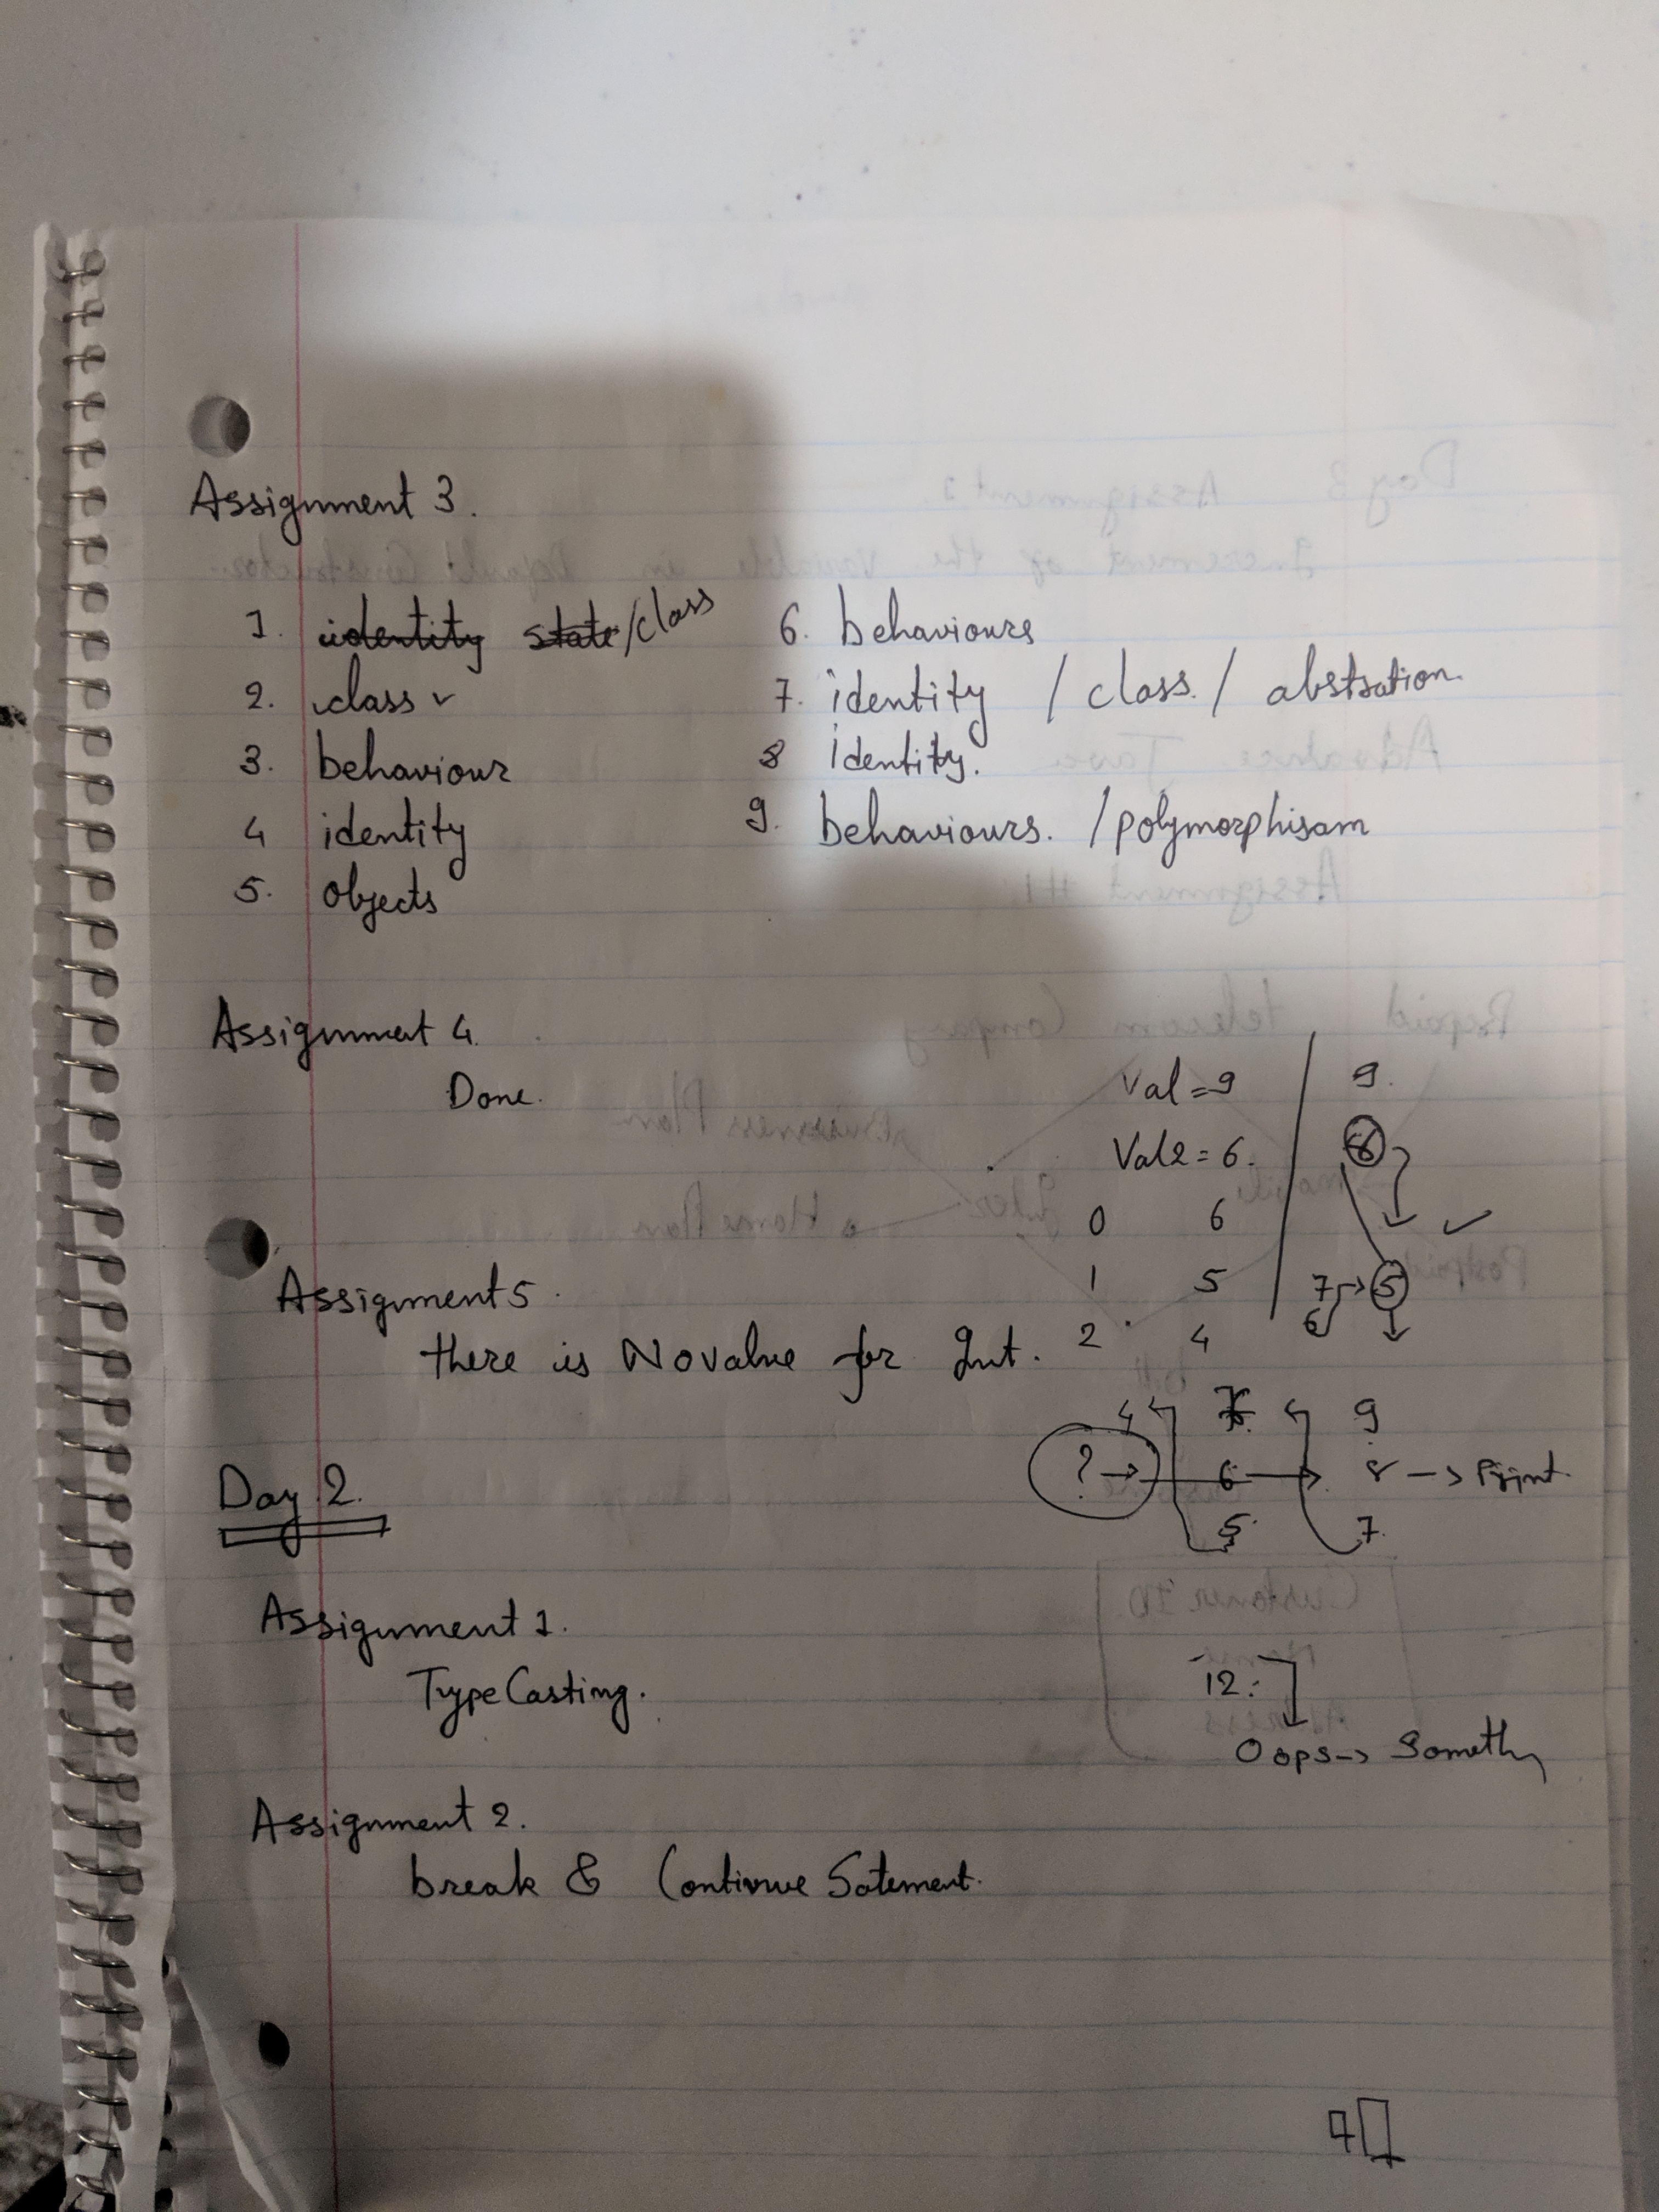 Assignment 3.
1. identity state/class
2. class ✓
3. behaviour
4 identity
5. objects
6. behaviours
7. identity / class. / abstration.
8 identity.
9. behaviours. / polymorphisam
Assignment 4.
Done.
Val = 9
Val2 = 6.
0 6
1 5
2 4
9.
8
✓
7 → 5
6
Assignment 5.
there is No value for Int.
4 9
? → 6 → 8 -> Print.
5 7.
Day 2.
Assignment 1.
Type Casting.
12.
Oops -> Someth
Assignment 2.
break & Continue Satement.